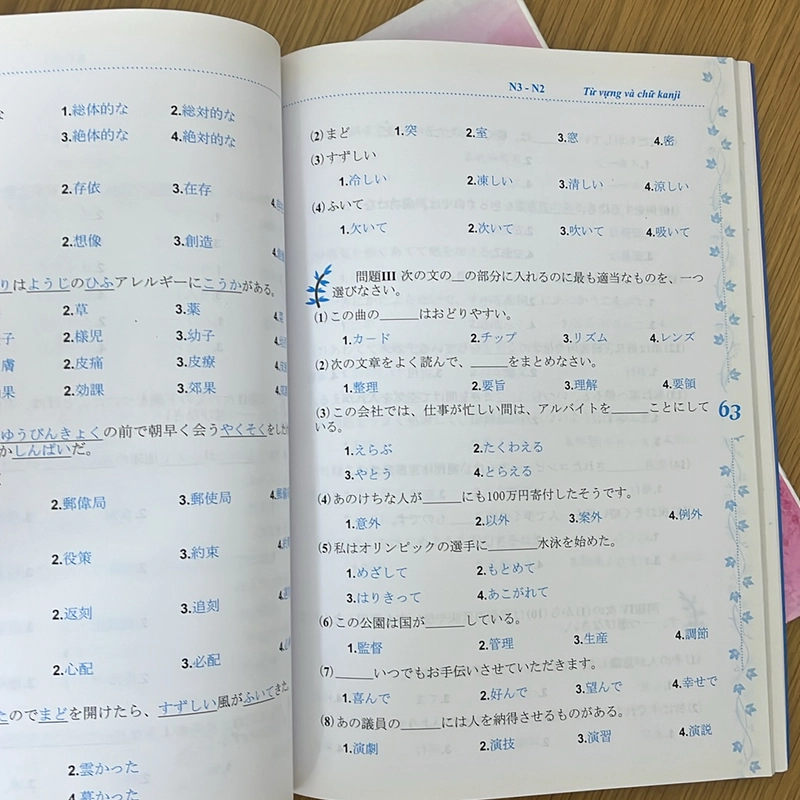 1.総体的な 2.総対的な
3.絶体的な 4.絶対的な
2.存依 3.在存
2.想像 3.創造
はようじのひふアレルギーにこうかがある。
2.草 3.薬
2.様児 3.幼子
2.皮痛 3.皮療
2.効課 3.郊果
ゆうびんきょくの前で朝早く会うやくそくをした
かしんぱいだ。
2.郵偉局 3.郵使局
2.役策 3.約束
2.返刻 3.追刻
2.心配 3.必配
のでまどを開けたら、すずしい風がふいてきた
2.雲かった
4.暮かった
N3 - N2 Từ vựng và chữ kanji
(2)まど 1.突 2.室 3.窓 4.密
(3)すずしい
1.冷しい 2.凍しい 3.清しい 4.涼しい
(4)ふいて
1.欠いて 2.次いて 3.吹いて 4.吸いて
問題III 次の文の__の部分に入れるのに最も適当なものを、一つ
選びなさい。
(1)この曲の______はおどりやすい。
1.カード 2.チップ 3.リズム 4.レンズ
(2)次の文章をよく読んで、______をまとめなさい。
1.整理 2.要旨 3.理解 4.要領
(3)この会社では、仕事が忙しい間は、アルバイトを______ことにして
いる。
1.えらぶ 2.たくわえる
3.やとう 4.とらえる
(4)あのけちな人が______にも100万円寄付したそうです。
1.意外 2.以外 3.案外 4.例外
(5)私はオリンピックの選手に________水泳を始めた。
1.めざして 2.もとめて
3.はりきって 4.あこがれて
(6)この公園は国が______している。
1.監督 2.管理 3.生産 4.調節
(7)______いつでもお手伝いさせていただきます。
1.喜んで 2.好んで 3.望んで 4.幸せで
(8)あの議員の______には人を納得させるものがある。
1.演劇 2.演技 3.演習 4.演説
63